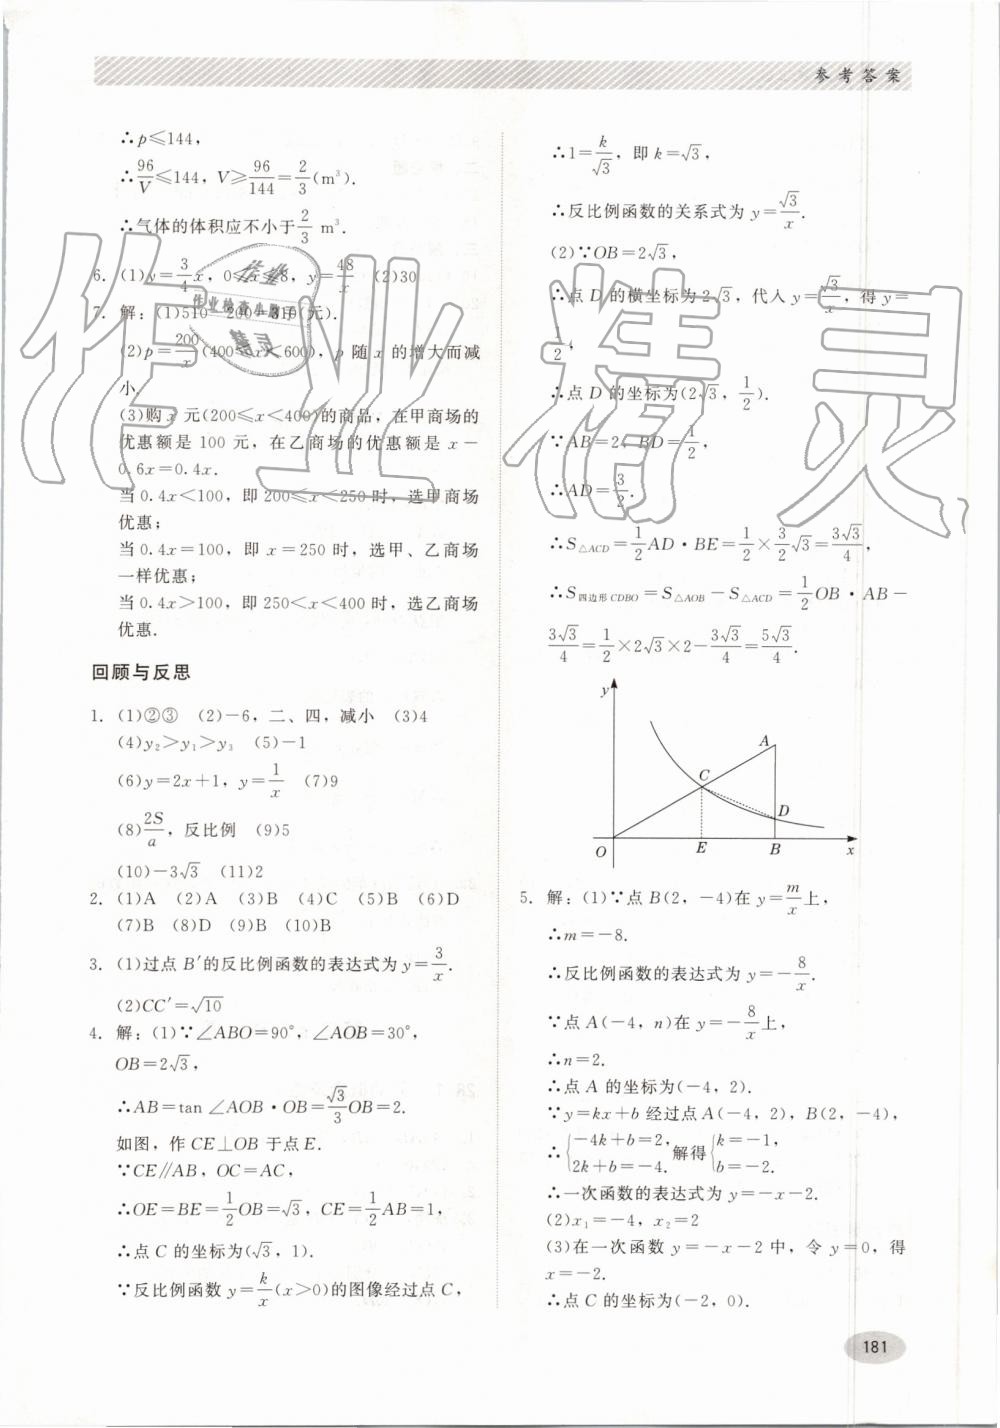 参考答案
∴p≤144,
∴96/V≤144, V≥96/144=2/3(m³).
∴气体的体积应不小于2/3 m³.
6. (1)y=3/4x, 0≤x≤8, y=48/x (2)30
7. 解:(1)510-200=310(元).
(2)p=200/x(400≤x<600), p 随 x 的增大而减
小.
(3)购 x 元(200≤x<400)的商品, 在甲商场的
优惠额是 100 元, 在乙商场的优惠额是 x-
0.6x=0.4x.
当 0.4x<100, 即 200≤x<250 时, 选甲商场
优惠;
当 0.4x=100, 即 x=250 时, 选甲、乙商场
一样优惠;
当 0.4x>100, 即 250<x<400 时, 选乙商场
优惠.
回顾与反思
1. (1)②③ (2)-6, 二、四, 减小 (3)4
(4)y₂>y₁>y₃ (5)-1
(6)y=2x+1, y=1/x (7)9
(8)2S/a, 反比例 (9)5
(10)-3√3 (11)2
2. (1)A (2)A (3)B (4)C (5)B (6)D
(7)B (8)D (9)B (10)B
3. (1)过点 B′的反比例函数的表达式为 y=3/x.
(2)CC′=√10
4. 解:(1)∵∠ABO=90°, ∠AOB=30°,
OB=2√3,
∴AB=tan ∠AOB·OB=√3/3OB=2.
如图, 作 CE⊥OB 于点 E.
∵CE∥AB, OC=AC,
∴OE=BE=1/2OB=√3, CE=1/2AB=1,
∴点 C 的坐标为(√3, 1).
∵反比例函数 y=k/x(x>0)的图像经过点 C,
∴1=k/√3, 即 k=√3,
∴反比例函数的关系式为 y=√3/x.
(2)∵OB=2√3,
∴点 D 的横坐标为 2√3, 代入 y=√3/x, 得 y=
1/2,
∴点 D 的坐标为(2√3, 1/2).
∵AB=2, BD=1/2,
∴AD=3/2.
∴S△ACD=1/2AD·BE=1/2×3/2√3=3√3/4,
∴S四边形CDBO=S△AOB-S△ACD=1/2OB·AB-
3√3/4=1/2×2√3×2-3√3/4=5√3/4.
y
A
C
D
O E B x
5. 解:(1)∵点 B(2, -4)在 y=m/x上,
∴m=-8.
∴反比例函数的表达式为 y=-8/x.
∵点 A(-4, n)在 y=-8/x上,
∴n=2.
∴点 A 的坐标为(-4, 2).
∵y=kx+b 经过点 A(-4, 2), B(2, -4),
∴{-4k+b=2, 2k+b=-4. 解得{k=-1, b=-2.
∴一次函数的表达式为 y=-x-2.
(2)x₁=-4, x₂=2
(3)在一次函数 y=-x-2 中, 令 y=0, 得
x=-2.
∴点 C 的坐标为(-2, 0).
181
作业精灵
作业
作业检查小助手
精灵